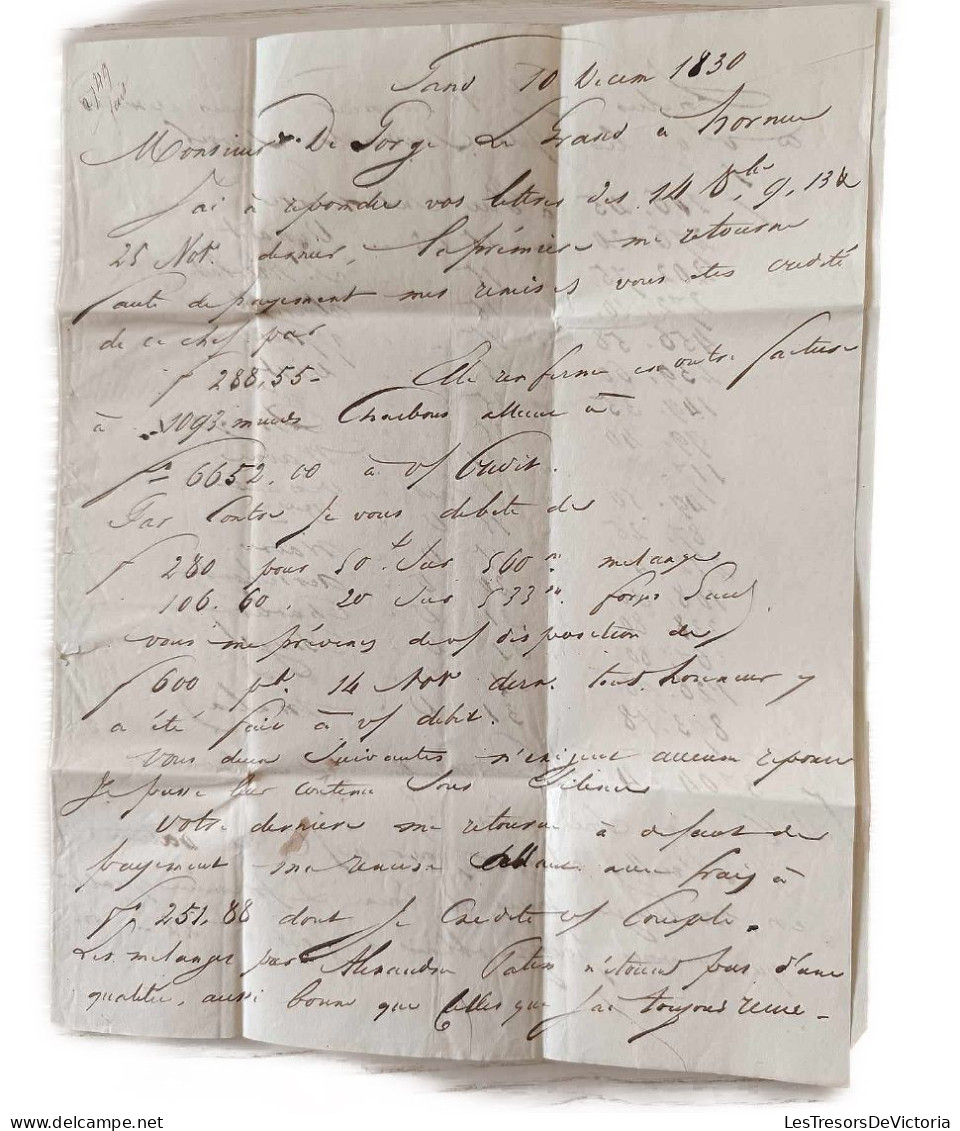 Gand 10 Decem 1830
Monsieur De Gorge Le Grand à hornu
J'ai à repondre vos lettres des 14 8bre, 9, 13 &
25 Nov. dernier, la prémiere me retourne
faute de payement mes remises vous etes credité
de ce chef par
f 288,55 - Elle renferme en outre facture
à 1093 muids Charbons allant à
6652,00 à v/ Credit.
Par Contre je vous debite de
f 280 pour 50 sur 560 melange
106.60. 20 sur 533 forge
vous me prévenez de v/ disposition de
f 600 14 Nov dern. tout honneur y
a été fait à v/ debit.
vous deux suivantes n'exigent aucune reponse
Je passe leur contenu sous Silence
Votre derniere me retourne à defaut de
payement ma remise allant avec frais à
251,88 dont je Credite v/ Compte.
Les melanges par Alexandre n'étaient pas d'une
qualitée, aussi bonne que celles que j'ai toujours recue -
LesTresorsDeVictoria